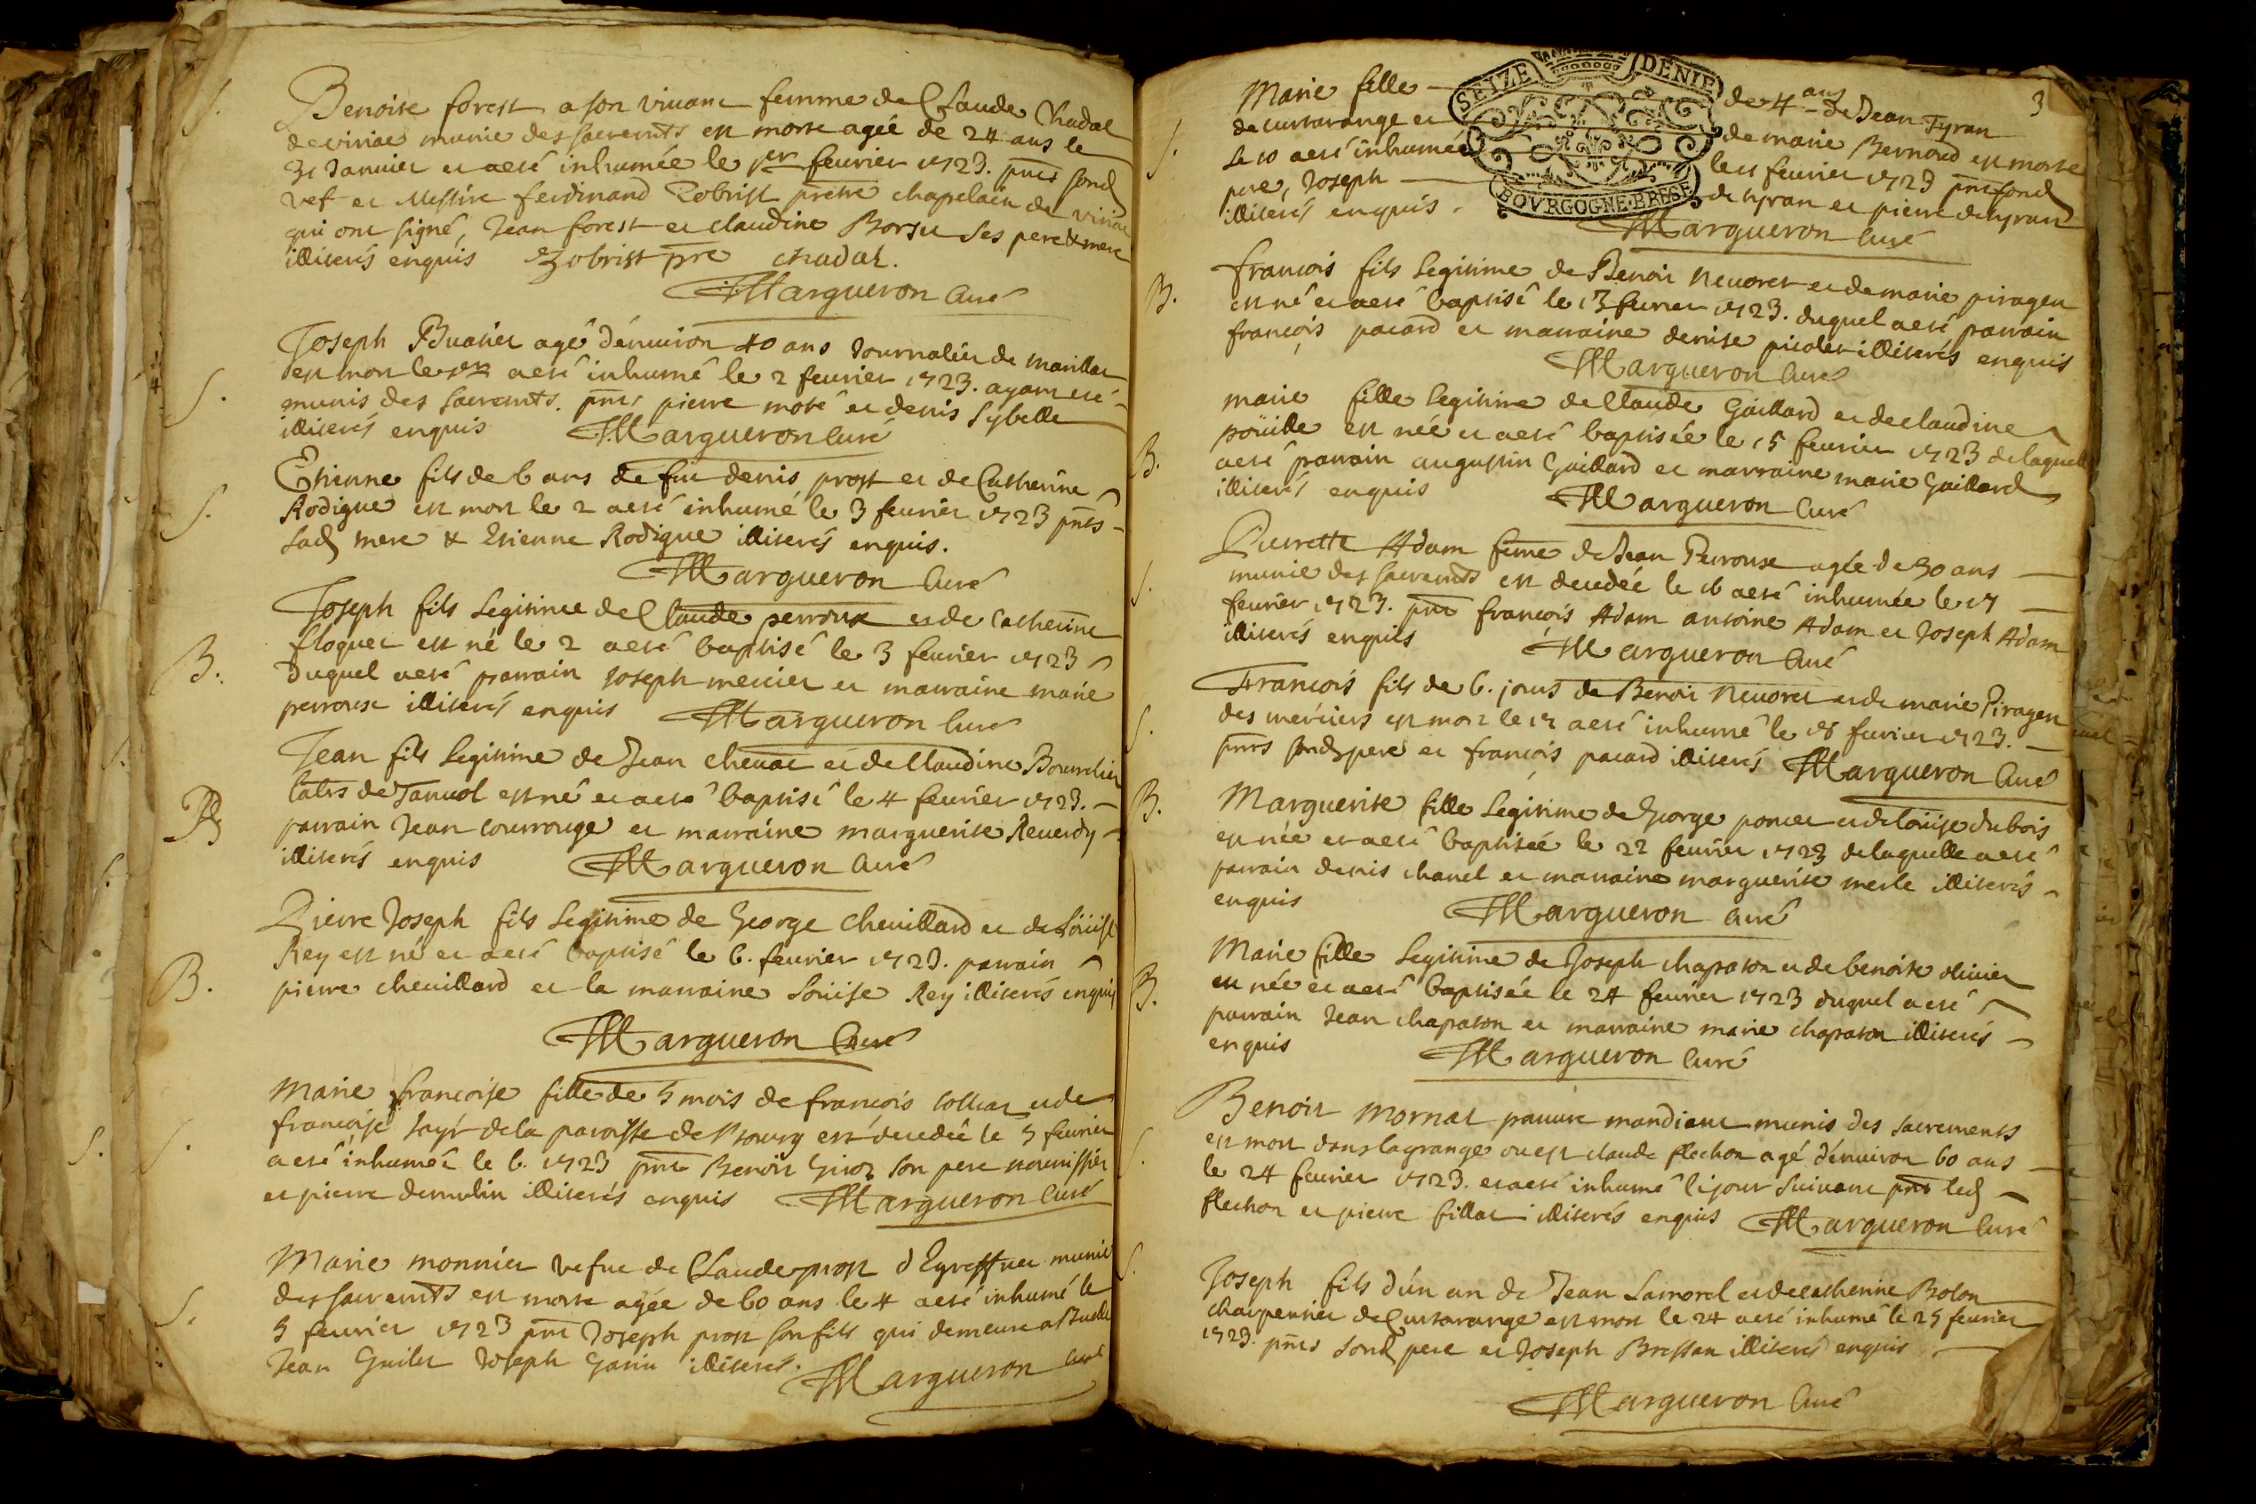 S.
Benoite forest a son vivant femme de Claude Chadal
de viriac munie des sacremts est morte agée de 24 ans le
31 Janvier et a eté inhumée le 1er fevrier 1723. pnts sond
vef et Messire ferdinand Zobrist pretre chapelain de viriac
qui ont signé, Jean forest et claudine Borsu ses pere & mere
illiterés enquis Zobrist pre chadal.
Margueron Curé
S.
Joseph Buatier agé d'environ 40 ans Journalier de Marillat
est mort le 1er a eté inhumé le 2 fevrier 1723. ayant eté
munis des sacremts. pnts pierre moté et denis Sybelle
illiterés enquis Margueron Curé
S.
Etienne fils de 6 ans de fut denis prost et de Catherine
Rodigue est mort le 2 a eté inhumé le 3 fevrier 1723 pnts
lad mere & Etienne Rodigue illiterés enquis.
Margueron Curé
B.
Joseph fils Legitime de Claude perroux et de Catherine
floquet est né le 2 a eté baptisé le 3 fevrier 1723
duquel a eté parrain Joseph mercier et marraine marie
perrouse illiterés enquis Margueron Curé
B
Jean fils Legitime de Jean chevat et de Claudine Bourchier
de Tanuol est né et a eté baptisé le 4 fevrier 1723.
parrain Jean courrouge et marraine marguerite Reverdy
illiterés enquis Margueron Curé
B.
Pierre Joseph fils Legitime de George chevillard et de Loüise
Rey est né et a eté baptisé le 6. fevrier 1723. parrain
pierre chevillard et la marraine Loüise Rey illiterés enquis
Margueron Curé
S.
Marie francoise fille de 5 mois de francois et de
francoise de la paroisse de Bourg est decedée le 5 fevrier
a eté inhumée le 6. 1723 pnts Benoit Girot son pere nourrissier
et pierre demolin illiterés enquis Margueron Curé
S.
Marie monnier vefve de Claude prost munie
des sacremts est morte agée de 60 ans le 4 a eté inhumé le
5 fevrier 1723 pnt Joseph prost son fils qui demeure a
Jean Guilet Joseph Garin illiterés. Margueron Curé
3
SEIZE DENIE
BOVRGOGNE·BRESSE
S.
Marie fille de 4 ans de Jean Tyran
de curtarange et de marie Bernard est morte
le 10 a eté inhumée le 11 fevrier 1723 pnts sond
pere, Joseph de tyran et pierre de tyran
illiterés enquis. Margueron Curé
B.
francois fils Legitime de Benoit Nevoret et de marie piraget
est né et a eté baptisé le 13 fevrier 1723. duquel a eté parrain
françois pacard et marraine denise picolet illiterés enquis
Margueron Curé
B.
marie fille Legitime de Claude Gaillard et de claudine
poüille est née et a eté baptisée le 15 fevrier 1723 de laquelle
a eté parrain augustin Gaillard et marraine marie Gaillard
illiterés enquis Margueron Curé
S.
Pierrette Adam feme de Jean Perrouse agée de 30 ans
munie des sacremts est decedée le 16 a eté inhumée le 17
fevrier 1723. pnts françois Adam antoine Adam et Joseph Adam
illiterés enquis Margueron Curé
S.
Francois fils de 6. jours de Benoit Nevoret et de marie Piraget
des merciers est mort le 17 a eté inhumé le 18 fevrier 1723.
pnts sond pere et françois pacard illiterés Margueron Curé
B.
Marguerite fille Legitime de George poncet et de loüise dubois
est née et a eté baptisée le 22 fevrier 1723 de laquelle a eté
parrain denis chanel et marraine marguerite merle illiterés
enquis Margueron Curé
B.
Marie fille Legitime de Joseph chapaton et de benoite olivier
est née et a eté baptisée le 24 fevrier 1723 duquel a eté
parrain Jean chapaton et marraine marie chapaton illiterés
enquis Margueron Curé
S.
Benoit Mornat pauvre mandiant munis des sacrements
est mort dans la grange ou est claude flechon agé d'environ 60 ans
le 24 fevrier 1723. et a eté inhumé le jour suivant pnts led
flechon et pierre fillat illiterés enquis Margueron Curé
S.
Joseph fils d'un an de Jean Lamorel et de catherine Bolon
charpentier de Curtarange est mort le 24 a eté inhumé le 25 fevrier
1723. pnts sond pere et Joseph Bressan illiterés enquis
Margueron Curé